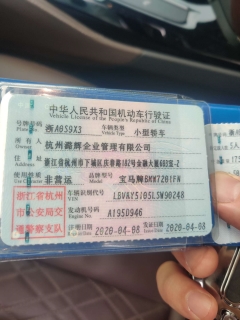 中华人民共和国机动车行驶证
Vehicle License of the People's Republic of China
号牌号码 浙A659X3 车辆类型 小型轿车
Plate No. Vehicle Type
所有人 杭州鑫辉企业管理有限公司
Owner
住址 浙江省杭州市下城区庆春路182号金融大厦602室-2
Address
使用性质 非营运 品牌型号 宝马牌BMW7201FN
Use Character Model
浙江省杭州 车辆识别代号 LBVAY5105LSW90248
VIN
市公安局交 发动机号码 A195D946
Engine No.
通警察支队 注册日期 2020-04-08 发证日期 2020-04-08
Register Date Issue Date